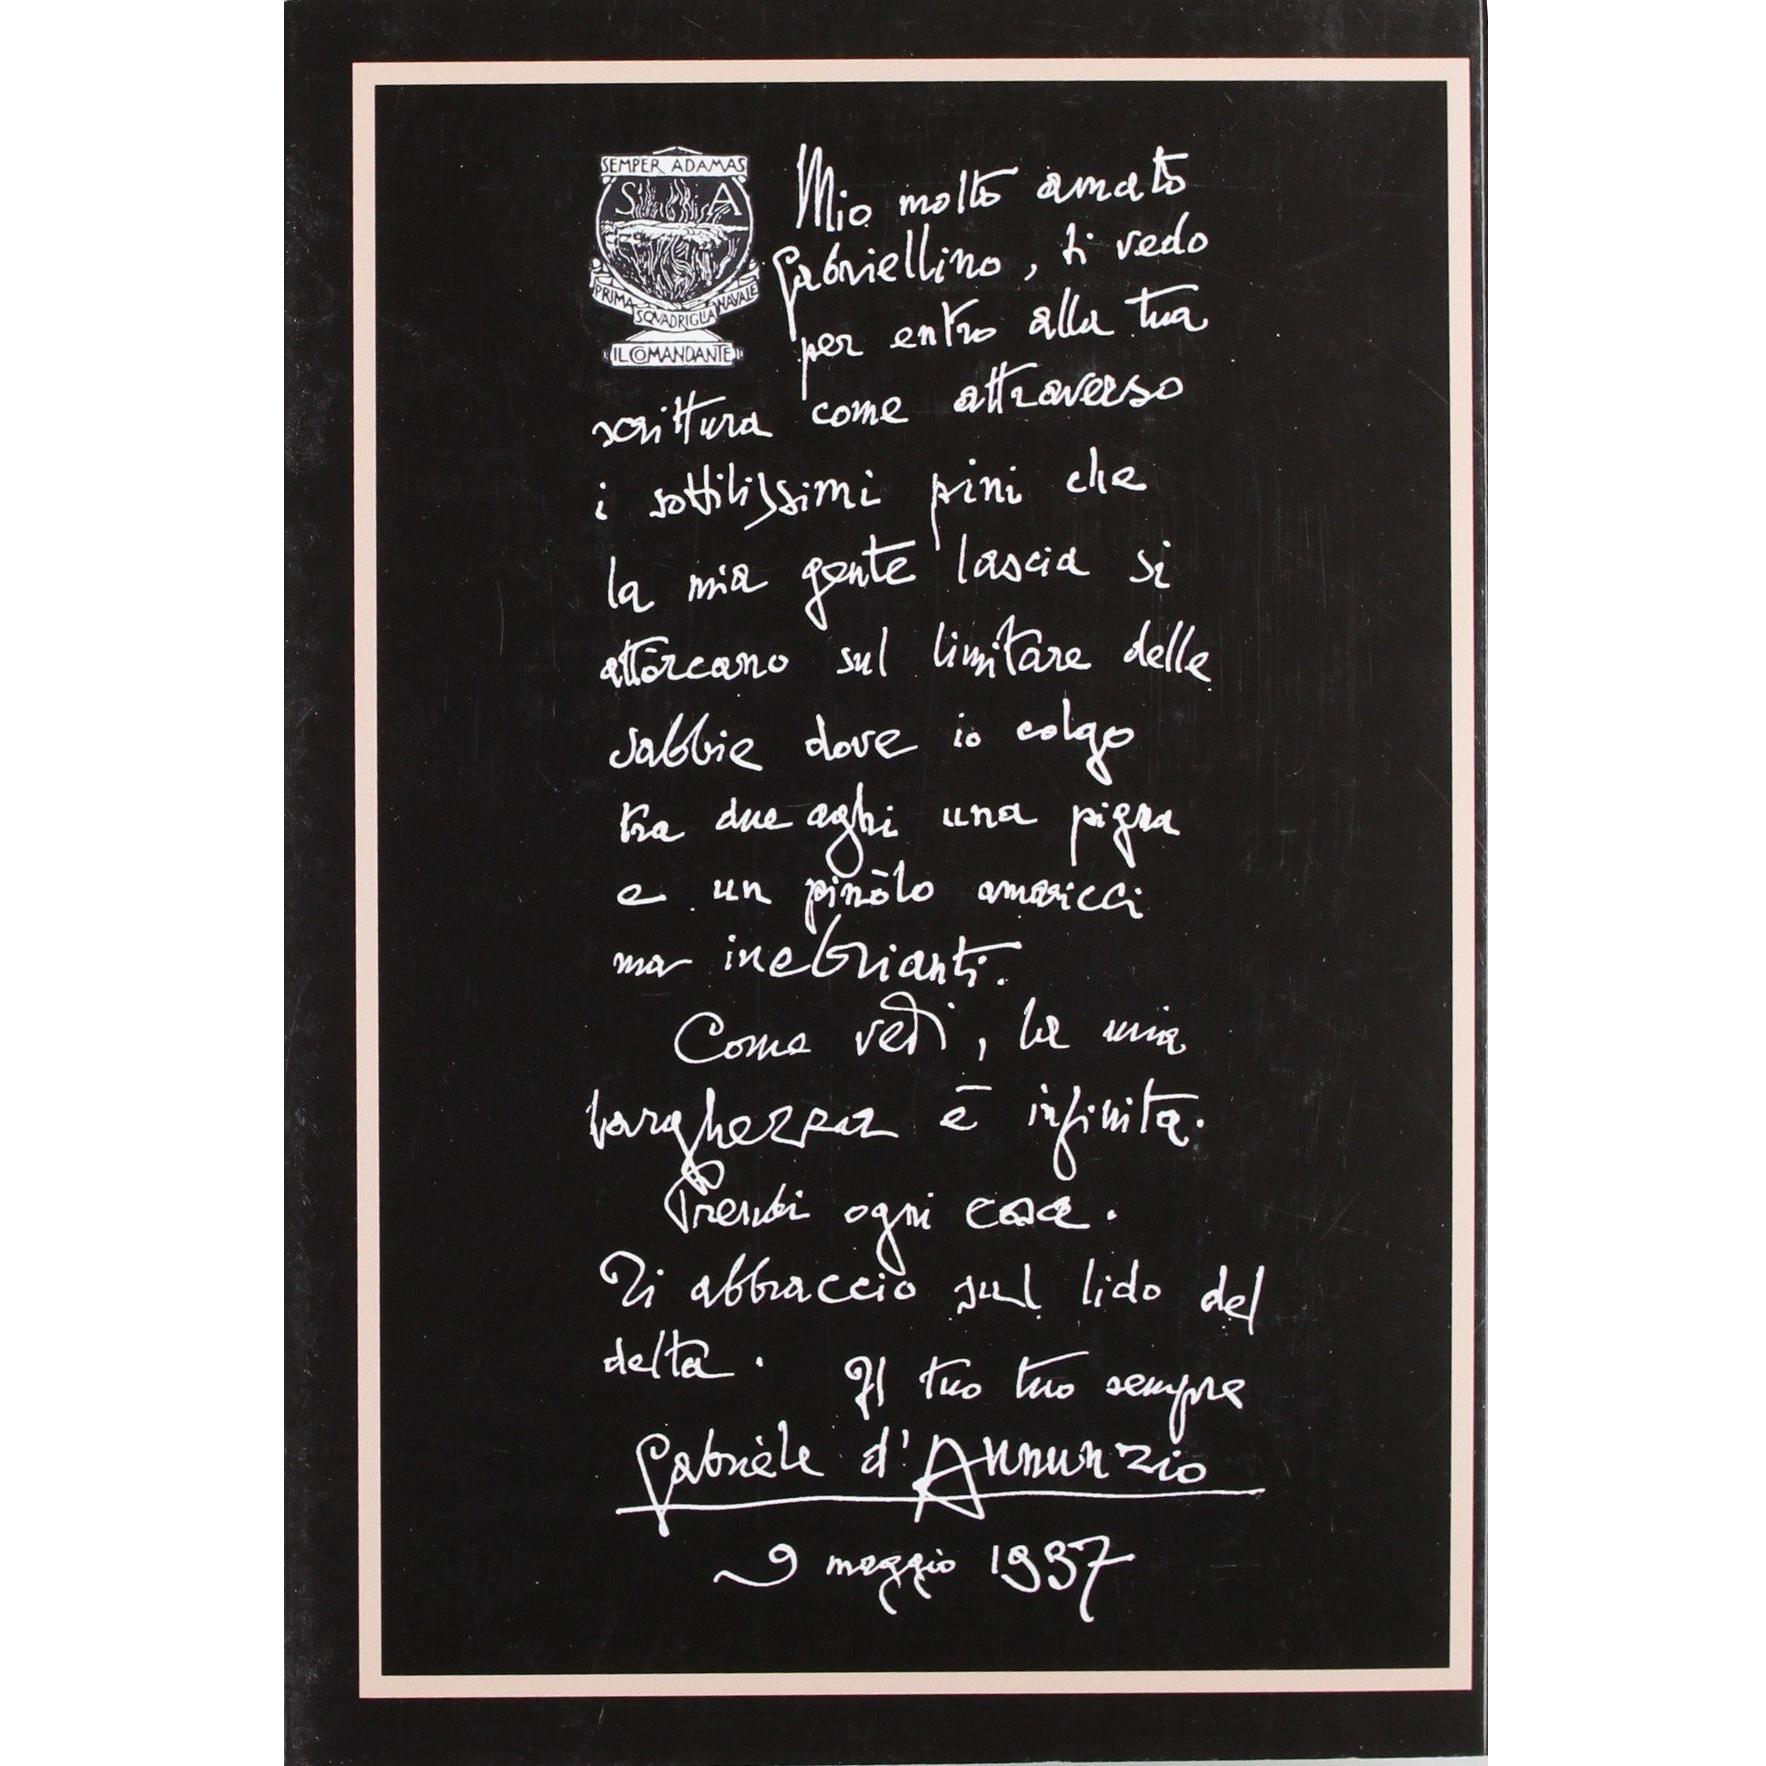 SEMPER ADAMAS
S A
PRIMA SQVADRIGLIA NAVALE
IL COMANDANTE
Mio molto amato
Gabriellino, ti vedo
per entro alla tua
scrittura come attraverso
i sottilissimi pini che
la mia gente lascia si
attòrcano sul limitare delle
sabbie dove io colgo
tra due aghi una pigna
e un pinòlo amaricci
ma inebrianti.
Come vedi, la mia
larghezza è infinita.
Prendi ogni cosa.
Ti abbraccio sul lido del
delta. Il tuo tuo sempre
Gabriele d'Annunzio
9 maggio 1937